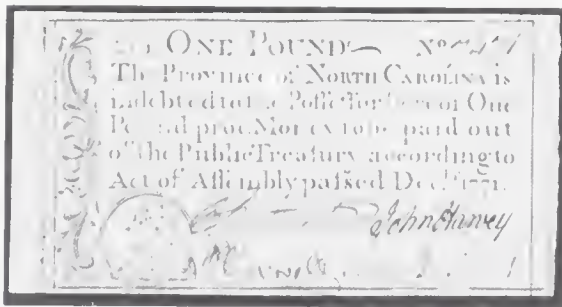 ONE POUND No
The Province of NORTH CAROLINA is
indebted to the Poſſeſſor hereof One
Pound proc. Money to be paid out
of the Public Treaſury according to
Act of Aſſembly paſsed Decr. 1771.
John Harvey